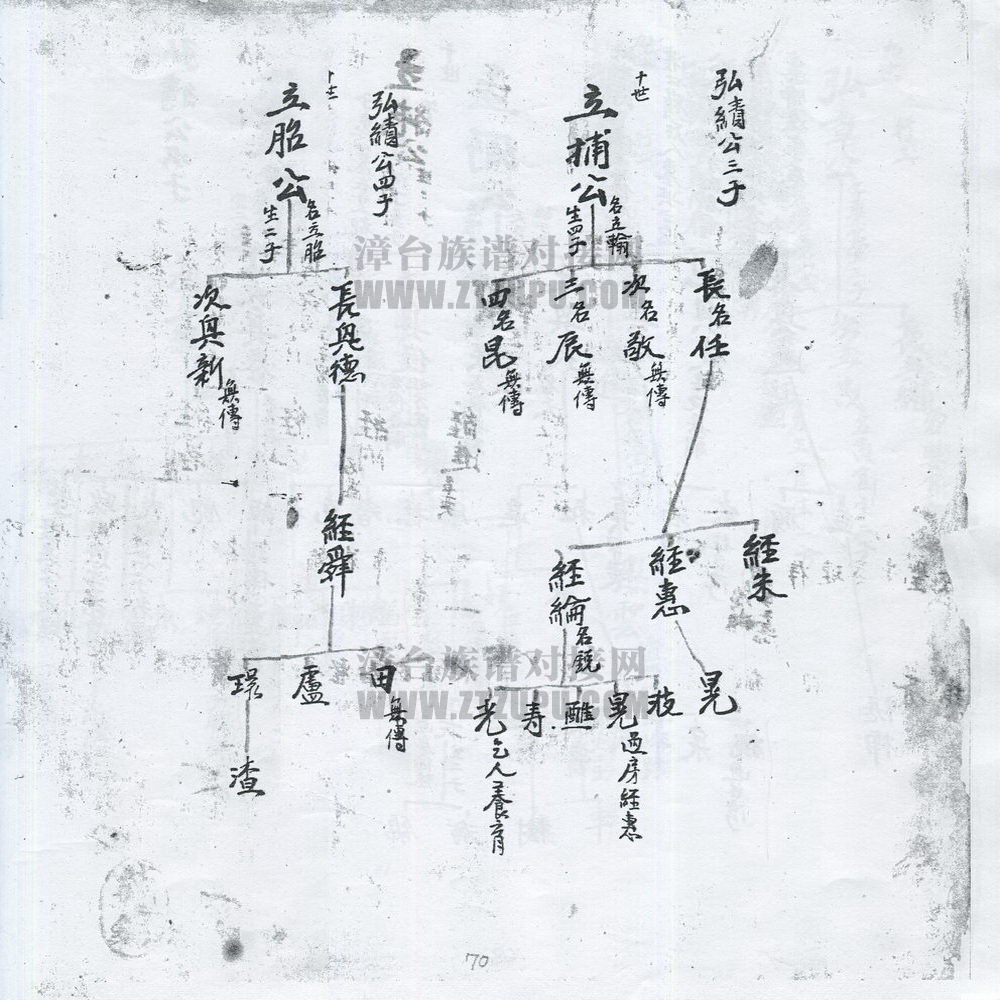 弘續公三子
十世
立捕公
名立輪
生四子
長名任
次名敬無傳
三名辰無傳
四名昆無傳
經朱
經惠
經綸名銳
晃
技
晃過房經惠
醮
寿
光乞人養育
弘續公四子
十世
立胎公
名立胎
生二子
長與德
次與新無傳
經舜
田無傳
盧
環
渣
漳台族谱对接网
WWW.ZTZUPU.COM
漳台族谱对接网
WWW.ZTZUPU.COM
70